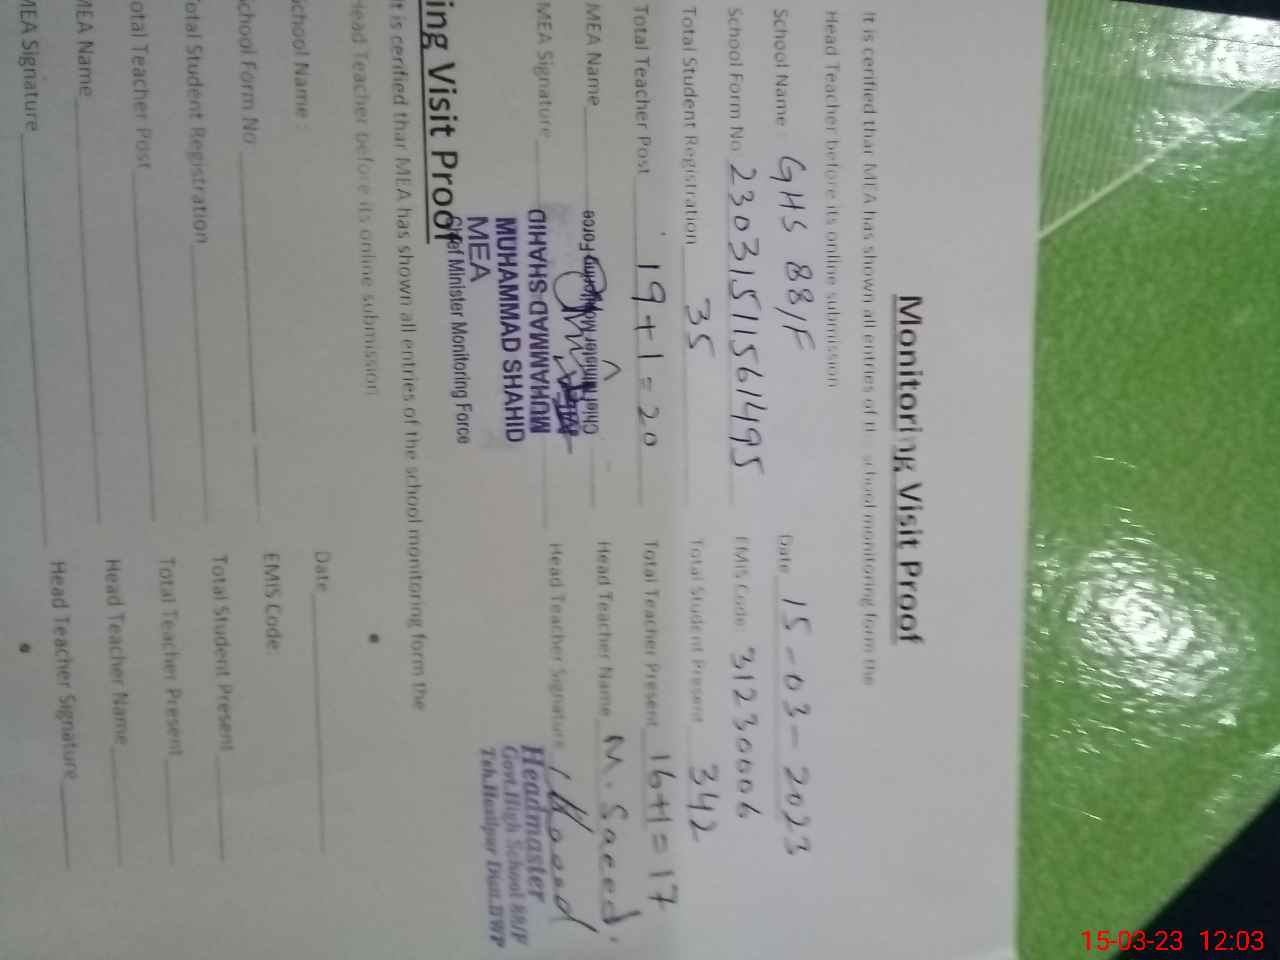 Monitoring Visit Proof
It is cerified thar MEA has shown all entries of the school monitoring form the
Head Teacher before its online submission
School Name : GHS 88/F Date 15-03-2023
School Form No 23031511561495 EMIS Code: 31230006
Total Student Registration 35 Total Student Present 342
Total Teacher Post 19+1=20 Total Teacher Present 16+1=17
MEA Name Head Teacher Name M. Saeed.
Chief Minister Monitoring Force
MEA
MEA Signature Head Teacher Signature
MUHAMMAD SHAHID
MUHAMMAD SHAHID
MEA
Chief Minister Monitoring Force
Headmaster
Govt.High School 88/F
Teh.Hasilpur Distt.BWP
ing Visit Proof
It is cerified thar MEA has shown all entries of the school monitoring form the
Head Teacher before its online submission
School Name : Date
School Form No EMIS Code:
Total Student Registration Total Student Present
Total Teacher Post Total Teacher Present
MEA Name Head Teacher Name
MEA Signature Head Teacher Signature
15-03-23 12:03